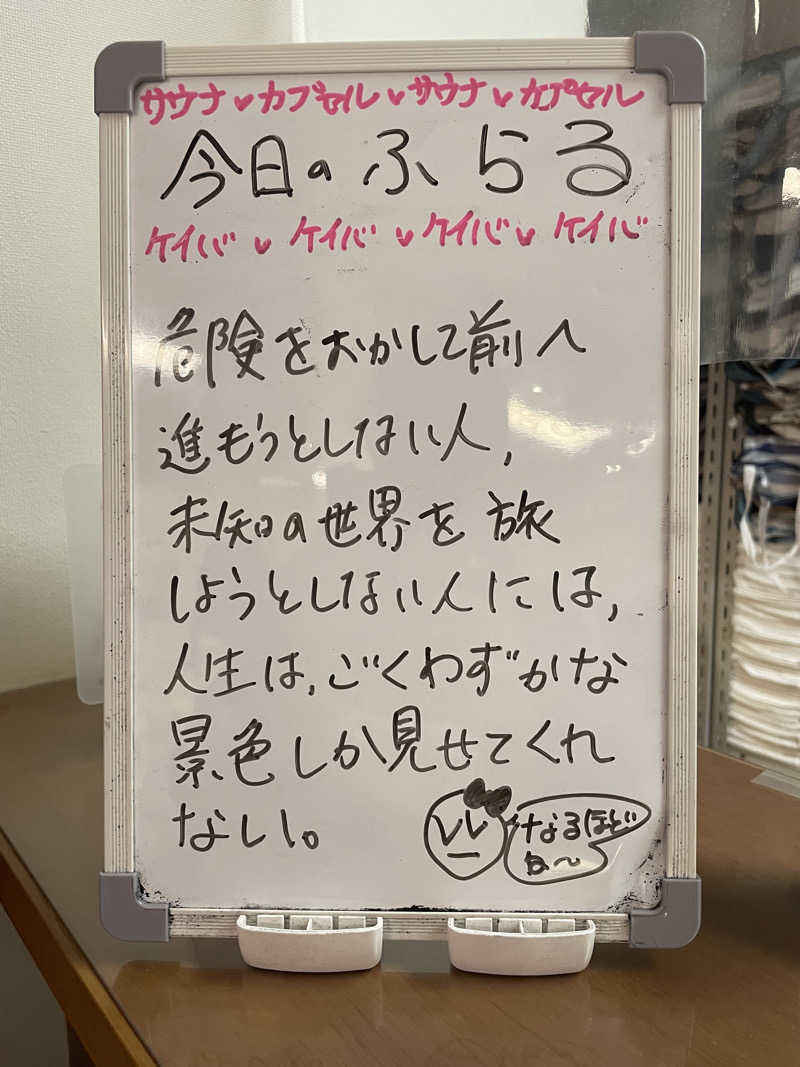 サウナ♥カプセル♥サウナ♥カプセル
今日のふらる
ケイバ♥ケイバ♥ケイバ♥ケイバ
危険をおかして前へ
進もうとしない人,
未知の世界を旅
しようとしない人には,
人生は,ごくわずかな
景色しか見せてくれ
ない。
なるほど
な〜